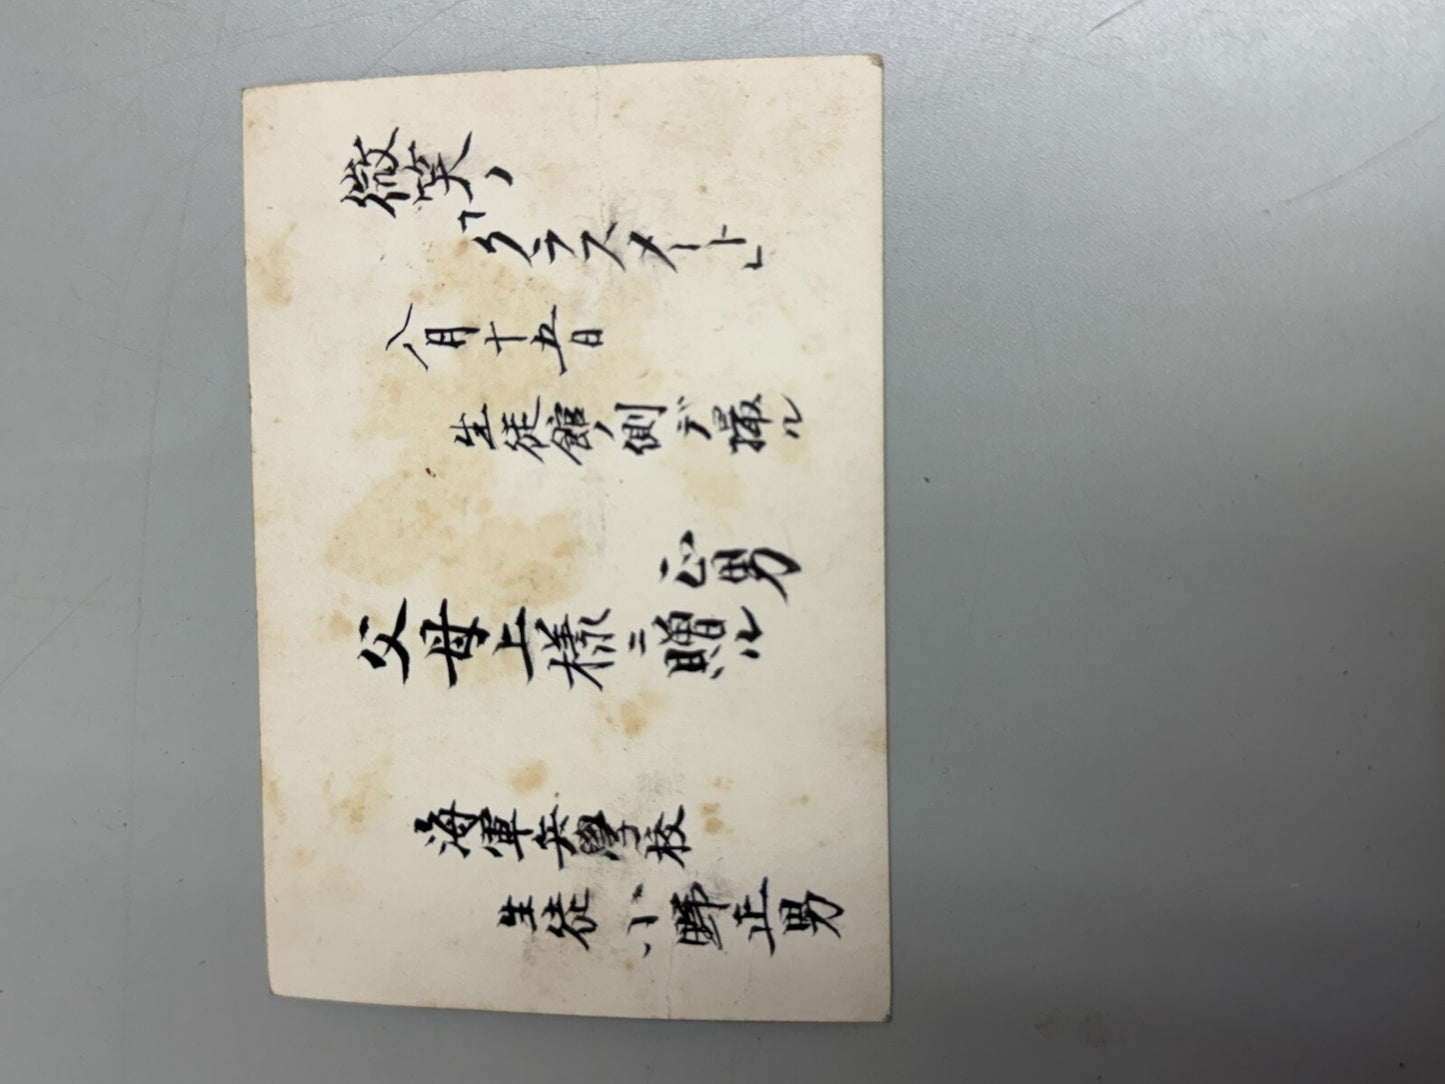 微笑ノ
「クラスメート」
八月十五日
生徒館ノ側デ撮ル
正男
父母上様ニ贈ル
海軍兵學校
生徒 小野正男